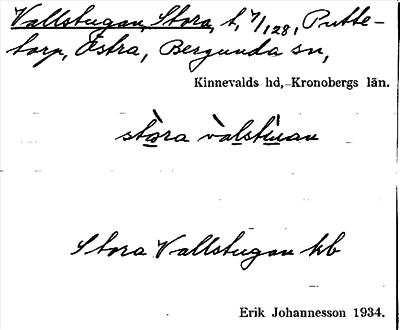 Vallstugan, Stora, t, 7/128, Putte-
torp, Östra, Bergunda sn,
Kinnevalds hd, Kronobergs län.
stora valstuan
Stora Vallstugan kb
Erik Johannesson 1934.